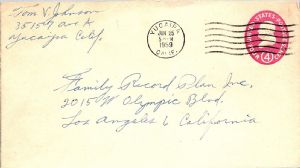 Tom V Johnson
35157 Ave A
Yucaipa Calif.
YUCAIPA
JUN 25
1959
CALIF.
UNITED STATES
4
Family Record Plan Inc,
2015 W Olympic Blvd.
Los Angeles 6 California